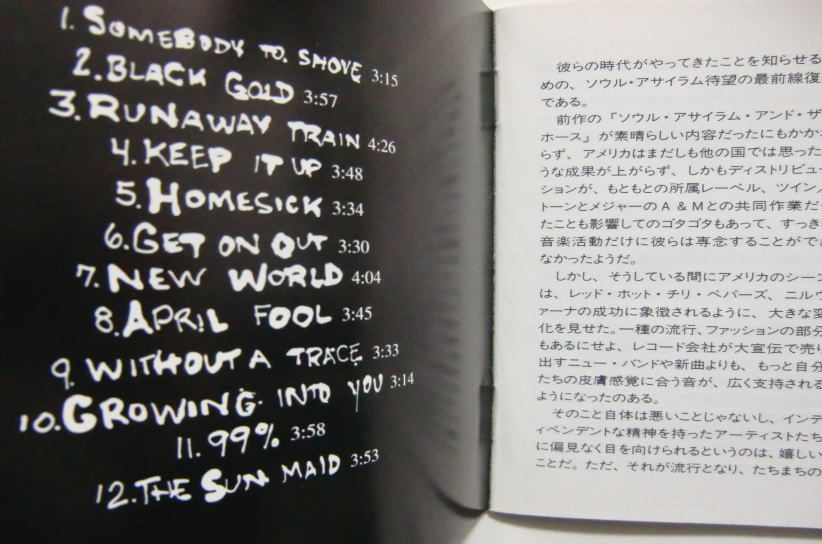 1. SOMEBODY TO. SHOVE 3:15
2. BLACK GOLD 3:57
3. RUNAWAY TRAIN 4:26
4. KEEP IT UP 3:48
5. HOMESICK 3:34
6. GET ON OUT 3:30
7. NEW WORLD 4:04
8. APRIL FOOL 3:45
9. WITHOUT A TRACE 3:33
10. GROWING INTO YOU 3:14
11. 99% 3:58
12. THE SUN MAID 3:53
彼らの時代がやってきたことを知らせる
めの、ソウル・アサイラム待望の最前線復
である。
前作の『ソウル・アサイラム・アンド・ザ
ホース』が素晴らしい内容だったにもかかわ
らず、アメリカはまだしも他の国では思った
うな成果が上がらず、しかもディストリビュー
ションが、もともとの所属レーベル、ツイン
トーンとメジャーのA&Mとの共同作業だ
たことも影響してのゴタゴタもあって、すっき
音楽活動だけに彼らは専念することがで
なかったようだ。
しかし、そうしている間にアメリカのシーン
は、レッド・ホット・チリ・ペパーズ、ニルヴ
ァーナの成功に象徴されるように、大きな変
化を見せた。一種の流行、ファッションの部分
もあるにせよ、レコード会社が大宣伝で売り
出すニュー・バンドや新曲よりも、もっと自分
たちの皮膚感覚に合う音が、広く支持される
ようになったのある。
そのこと自体は悪いことじゃないし、インデ
ィペンデントな精神を持ったアーティストたち
に偏見なく目を向けられるというのは、嬉しい
ことだ。ただ、それが流行となり、たちまちの